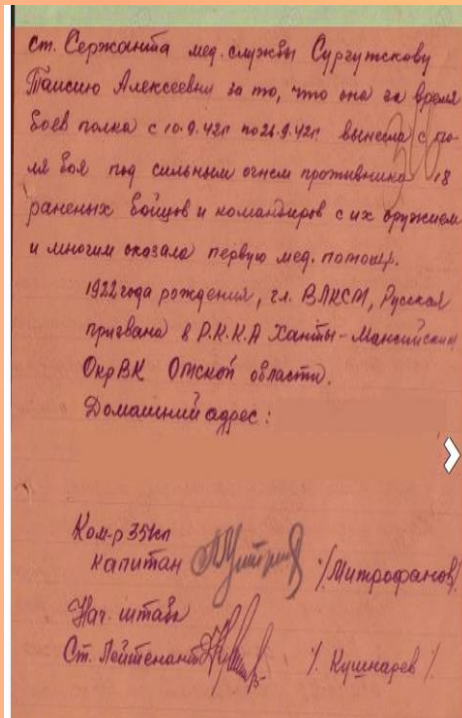 ст. Сержанта мед. службы Сургутскову
Таисию Алексеевну за то, что она за время
боев полка с 10.9.42г по 26.9.42г. вынесла с по-
ля боя под сильным огнем противника 18
раненых бойцов и командиров с их оружием
и многим оказала первую мед. помощь.
1922 года рождения, чл. ВЛКСМ, Русская
призвана в Р.К.К.А Ханты-Мансийским
ОкрВК Омской области.
Домашний адрес:
Ком-р 35кп
капитан /Митрофанов/
Нач. штаба
Ст. Лейтенант /. Кушнарев /.